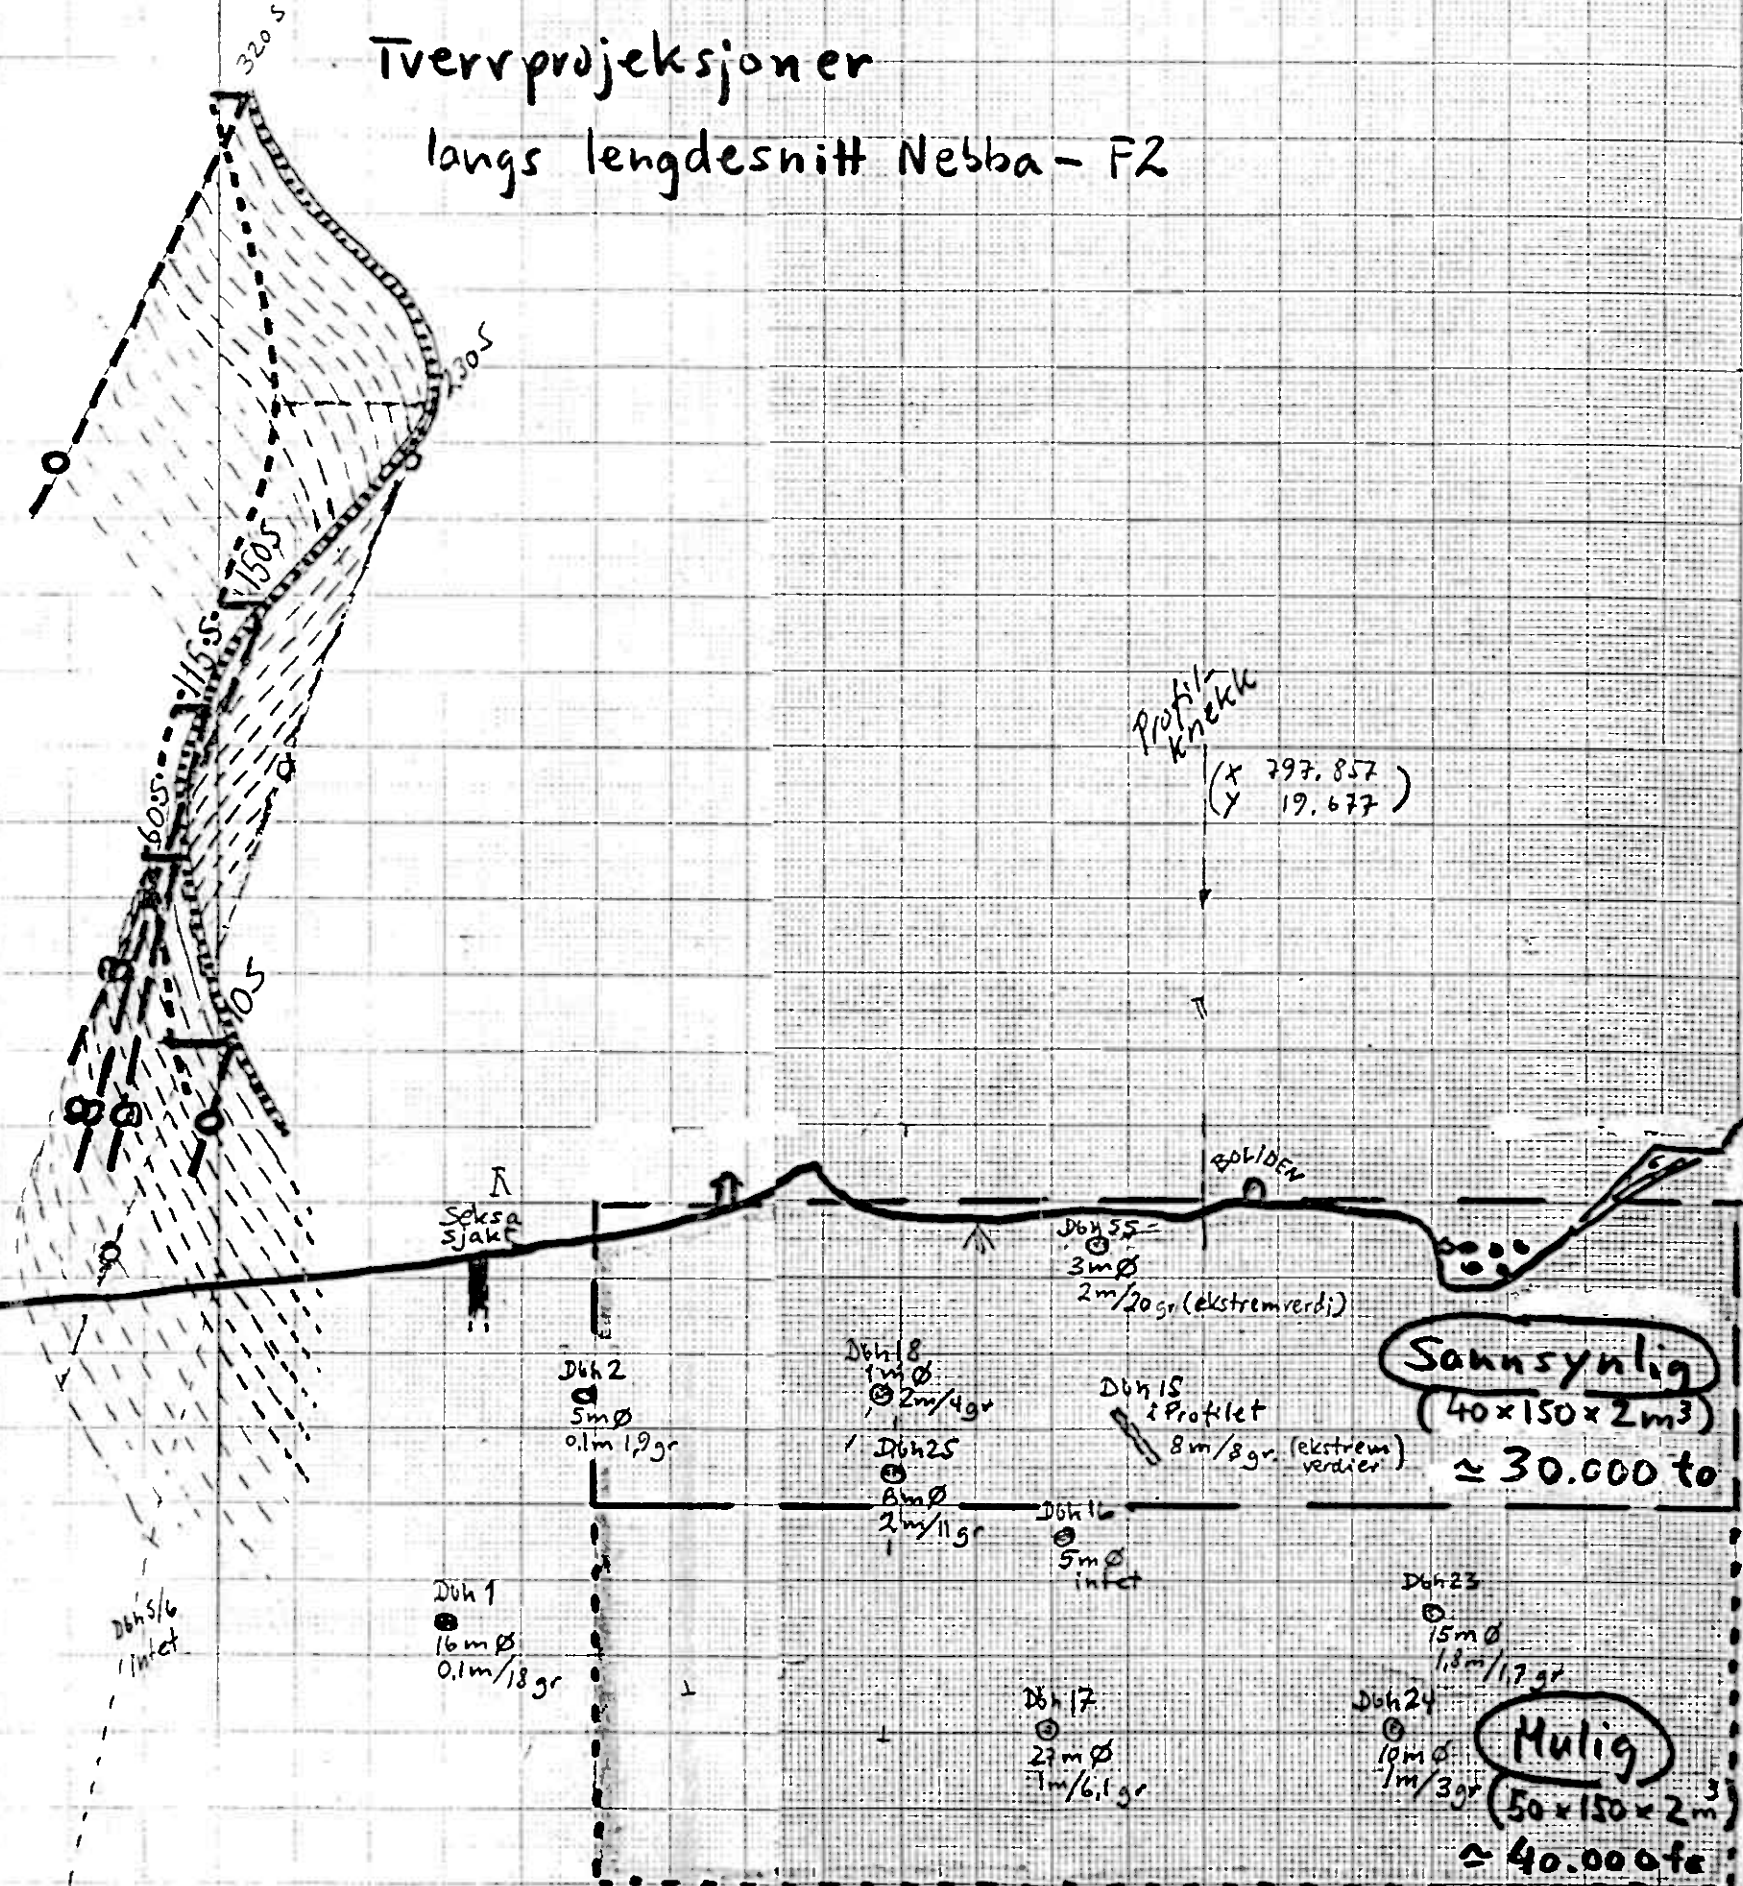 Tverrprojeksjoner
langs lengdesnitt Nebba - F2
320 S
230 S
150 S
115 S
60 S
10 S
Profil-
knekk
(X 797.857
Y 19.677)
BOLIDEN
Seksa
sjakt
Dbh 55
3m Ø
2m/20gr (ekstremverdi)
Dbh 2
5m Ø
0,1m 1,9gr
Dbh 18
1m Ø
2m/4gr
Dbh 15
i Profilet
8m/8gr. (ekstrem
verdier)
Dbh 25
8m Ø
2m/11gr
Sannsynlig
(40 x 150 x 2 m³)
≃ 30.000 to
Dbh 16
5m Ø
intet
Dbh 1
16m Ø
0,1m/18gr
Dbh 5/6
intet
Dbh 23
15m Ø
1,8m/1,7gr
Dbh 17
27m Ø
1m/6,1gr
Dbh 24
10m Ø
1m/3gr
Mulig
(50 x 150 x 2 m³)
≃ 40.000 to